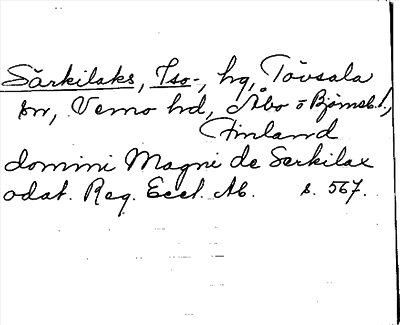 Särkilaks, Iso-, hg, Tövsala
sn, Vemo hd, Åbo o Björneb. l.,
Finland
domini Magni de Serkilax
odat. Reg. Eccl. Ab. s. 567.